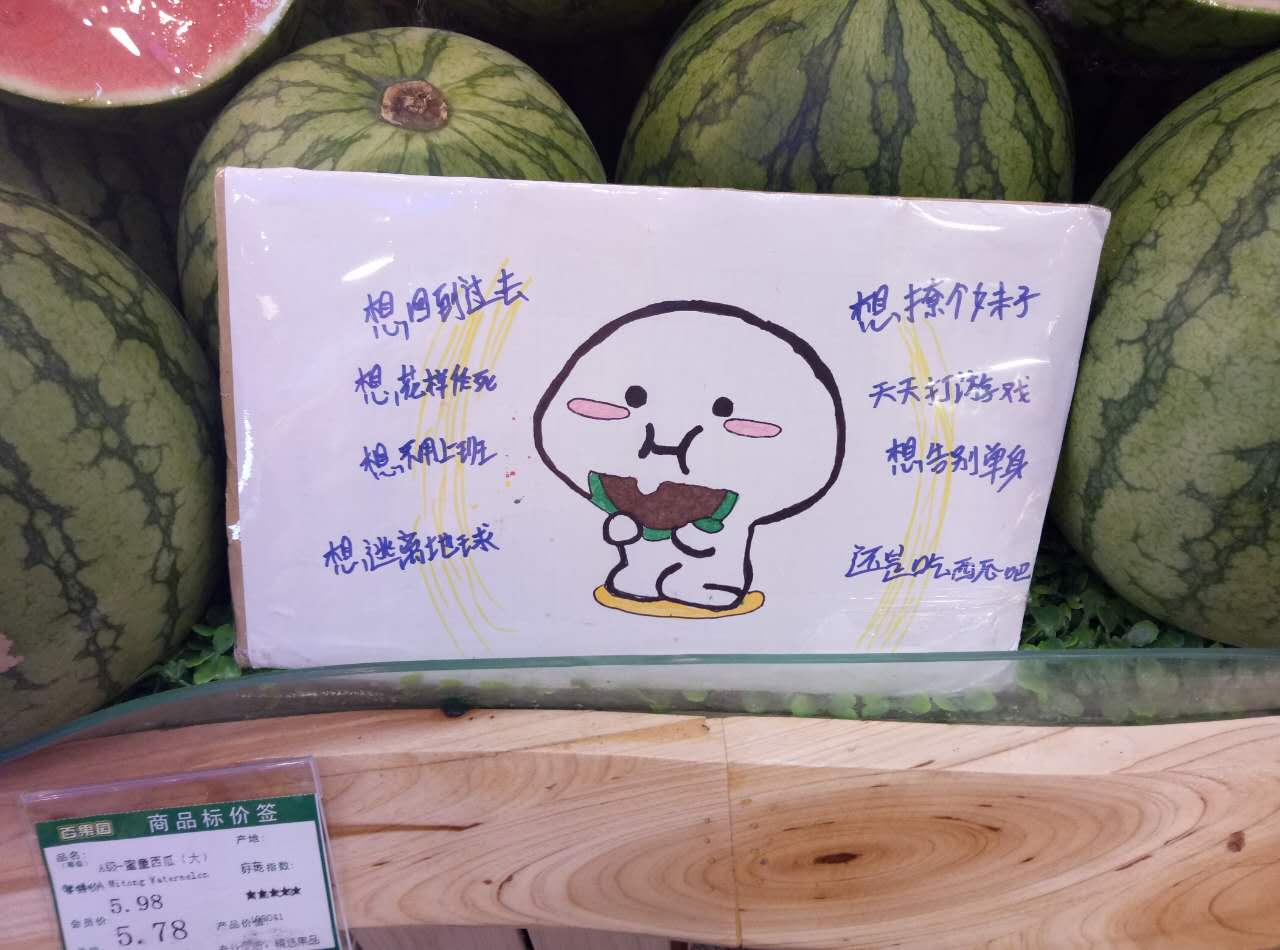 想回到过去
想花样作死
想不用上班
想逃离地球
想撩个妹子
天天打游戏
想告别单身
还是吃西瓜吧
百果园 商品标价签
品名:
A级-蜜童西瓜(大)
A Mitong Watermelon
5.98
会员价
5.78
产地:
好吃指数:
★★★★★
产品价值: